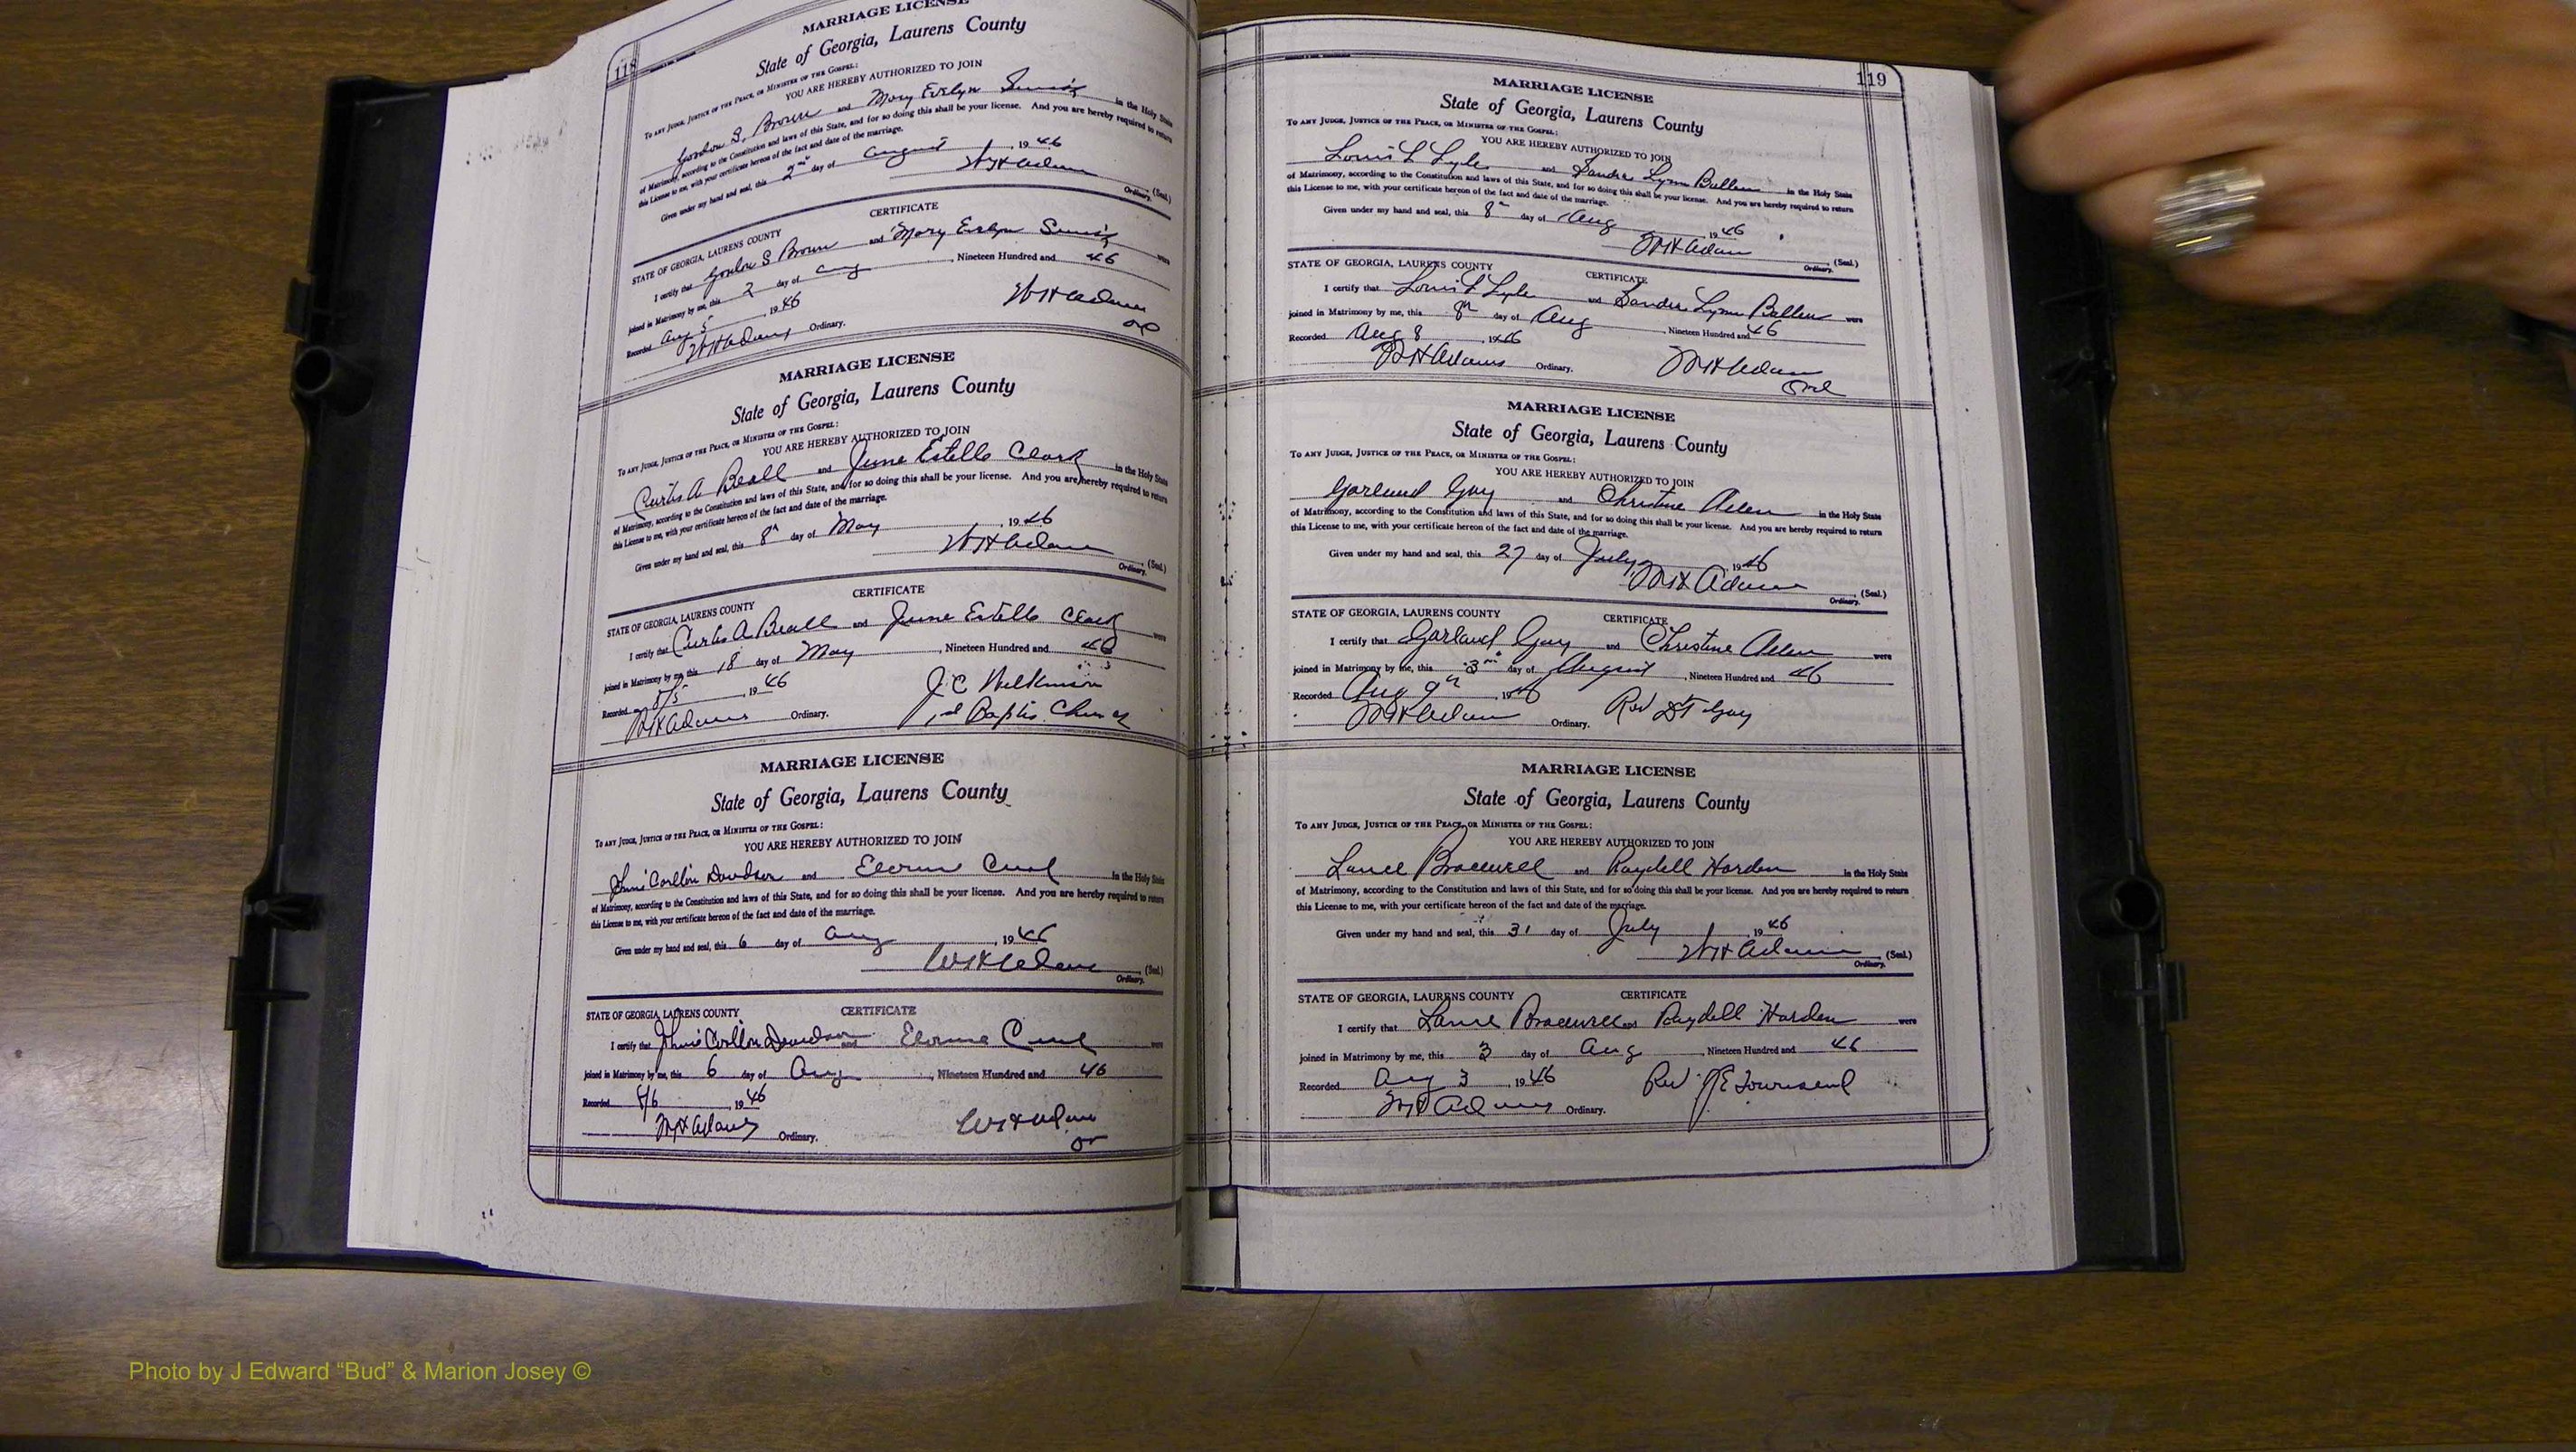 118
MARRIAGE LICENSE
State of Georgia, Laurens County
To any Judge, Justice of the Peace, or Minister of the Gospel:
YOU ARE HEREBY AUTHORIZED TO JOIN
Gordon S. Brown and Mary Evelyn in the Holy State
of Matrimony, according to the Constitution and laws of this State, and for so doing this shall be your license. And you are hereby required to return
this License to me, with your certificate hereon of the fact and date of the marriage.
Given under my hand and seal, this 2nd day of August, 1946
W H Adams (Seal.)
Ordinary.
CERTIFICATE
STATE OF GEORGIA, LAURENS COUNTY
I certify that Gordon S Brown and Mary Evelyn were
joined in Matrimony by me, this 2 day of Aug, Nineteen Hundred and 46
Recorded Aug 5, 1946
W H Adams Ordinary.
W H Adams
MARRIAGE LICENSE
State of Georgia, Laurens County
To any Judge, Justice of the Peace, or Minister of the Gospel:
YOU ARE HEREBY AUTHORIZED TO JOIN
Curtis A Beall and June Estelle Clark in the Holy State
of Matrimony, according to the Constitution and laws of this State, and for so doing this shall be your license. And you are hereby required to return
this License to me, with your certificate hereon of the fact and date of the marriage.
Given under my hand and seal, this 8th day of May, 1946
W H Adams (Seal.)
Ordinary.
CERTIFICATE
STATE OF GEORGIA, LAURENS COUNTY
I certify that Curtis A Beall and June Estelle Clark were
joined in Matrimony by me, this 18 day of May, Nineteen Hundred and 46
Recorded 8/5, 1946
W H Adams Ordinary.
J C Wilkinson
1st Baptis Church
MARRIAGE LICENSE
State of Georgia, Laurens County
To any Judge, Justice of the Peace, or Minister of the Gospel:
YOU ARE HEREBY AUTHORIZED TO JOIN
Davidson and in the Holy State
of Matrimony, according to the Constitution and laws of this State, and for so doing this shall be your license. And you are hereby required to return
this License to me, with your certificate hereon of the fact and date of the marriage.
Given under my hand and seal, this 6 day of Aug, 1946
W H Adams (Seal.)
Ordinary.
STATE OF GEORGIA, LAURENS COUNTY CERTIFICATE
I certify that Davidson and were
joined in Matrimony by me, this 6 day of Aug, Nineteen Hundred and 46
Recorded 8/6, 1946
W H Adams Ordinary.
W H Adams
or
119
MARRIAGE LICENSE
State of Georgia, Laurens County
To any Judge, Justice of the Peace, or Minister of the Gospel:
YOU ARE HEREBY AUTHORIZED TO JOIN
Louis L Lyle and Sandra Lynn in the Holy State
of Matrimony, according to the Constitution and laws of this State, and for so doing this shall be your license. And you are hereby required to return
this License to me, with your certificate hereon of the fact and date of the marriage.
Given under my hand and seal, this 8th day of Aug 1946
W H Adams (Seal.)
Ordinary.
STATE OF GEORGIA, LAURENS COUNTY CERTIFICATE
I certify that Louis L Lyle and Sandra Lynn were
joined in Matrimony by me, this 8th day of Aug, Nineteen Hundred and 46
Recorded Aug 8, 1946
W H Adams Ordinary.
W H Adams
Ord
MARRIAGE LICENSE
State of Georgia, Laurens County
To any Judge, Justice of the Peace, or Minister of the Gospel:
YOU ARE HEREBY AUTHORIZED TO JOIN
Garland Gay and Christine Allen in the Holy State
of Matrimony, according to the Constitution and laws of this State, and for so doing this shall be your license. And you are hereby required to return
this License to me, with your certificate hereon of the fact and date of the marriage.
Given under my hand and seal, this 27 day of July, 1946
W H Adams (Seal.)
Ordinary.
STATE OF GEORGIA, LAURENS COUNTY CERTIFICATE
I certify that Garland Gay and Christine Allen were
joined in Matrimony by me, this 3rd day of August, Nineteen Hundred and 46
Recorded Aug 9th, 1946
W H Adams Ordinary.
Rev Gay
MARRIAGE LICENSE
State of Georgia, Laurens County
To any Judge, Justice of the Peace, or Minister of the Gospel:
YOU ARE HEREBY AUTHORIZED TO JOIN
Bracewell and Raydell Harden in the Holy State
of Matrimony, according to the Constitution and laws of this State, and for so doing this shall be your license. And you are hereby required to return
this License to me, with your certificate hereon of the fact and date of the marriage.
Given under my hand and seal, this 31 day of July, 1946
W H Adams (Seal.)
Ordinary.
STATE OF GEORGIA, LAURENS COUNTY CERTIFICATE
I certify that Bracewell and Raydell Harden were
joined in Matrimony by me, this 3 day of Aug, Nineteen Hundred and 46
Recorded Aug 3, 1946
W H Adams Ordinary.
Rev J E Townsend
Photo by J Edward “Bud” & Marion Josey ©